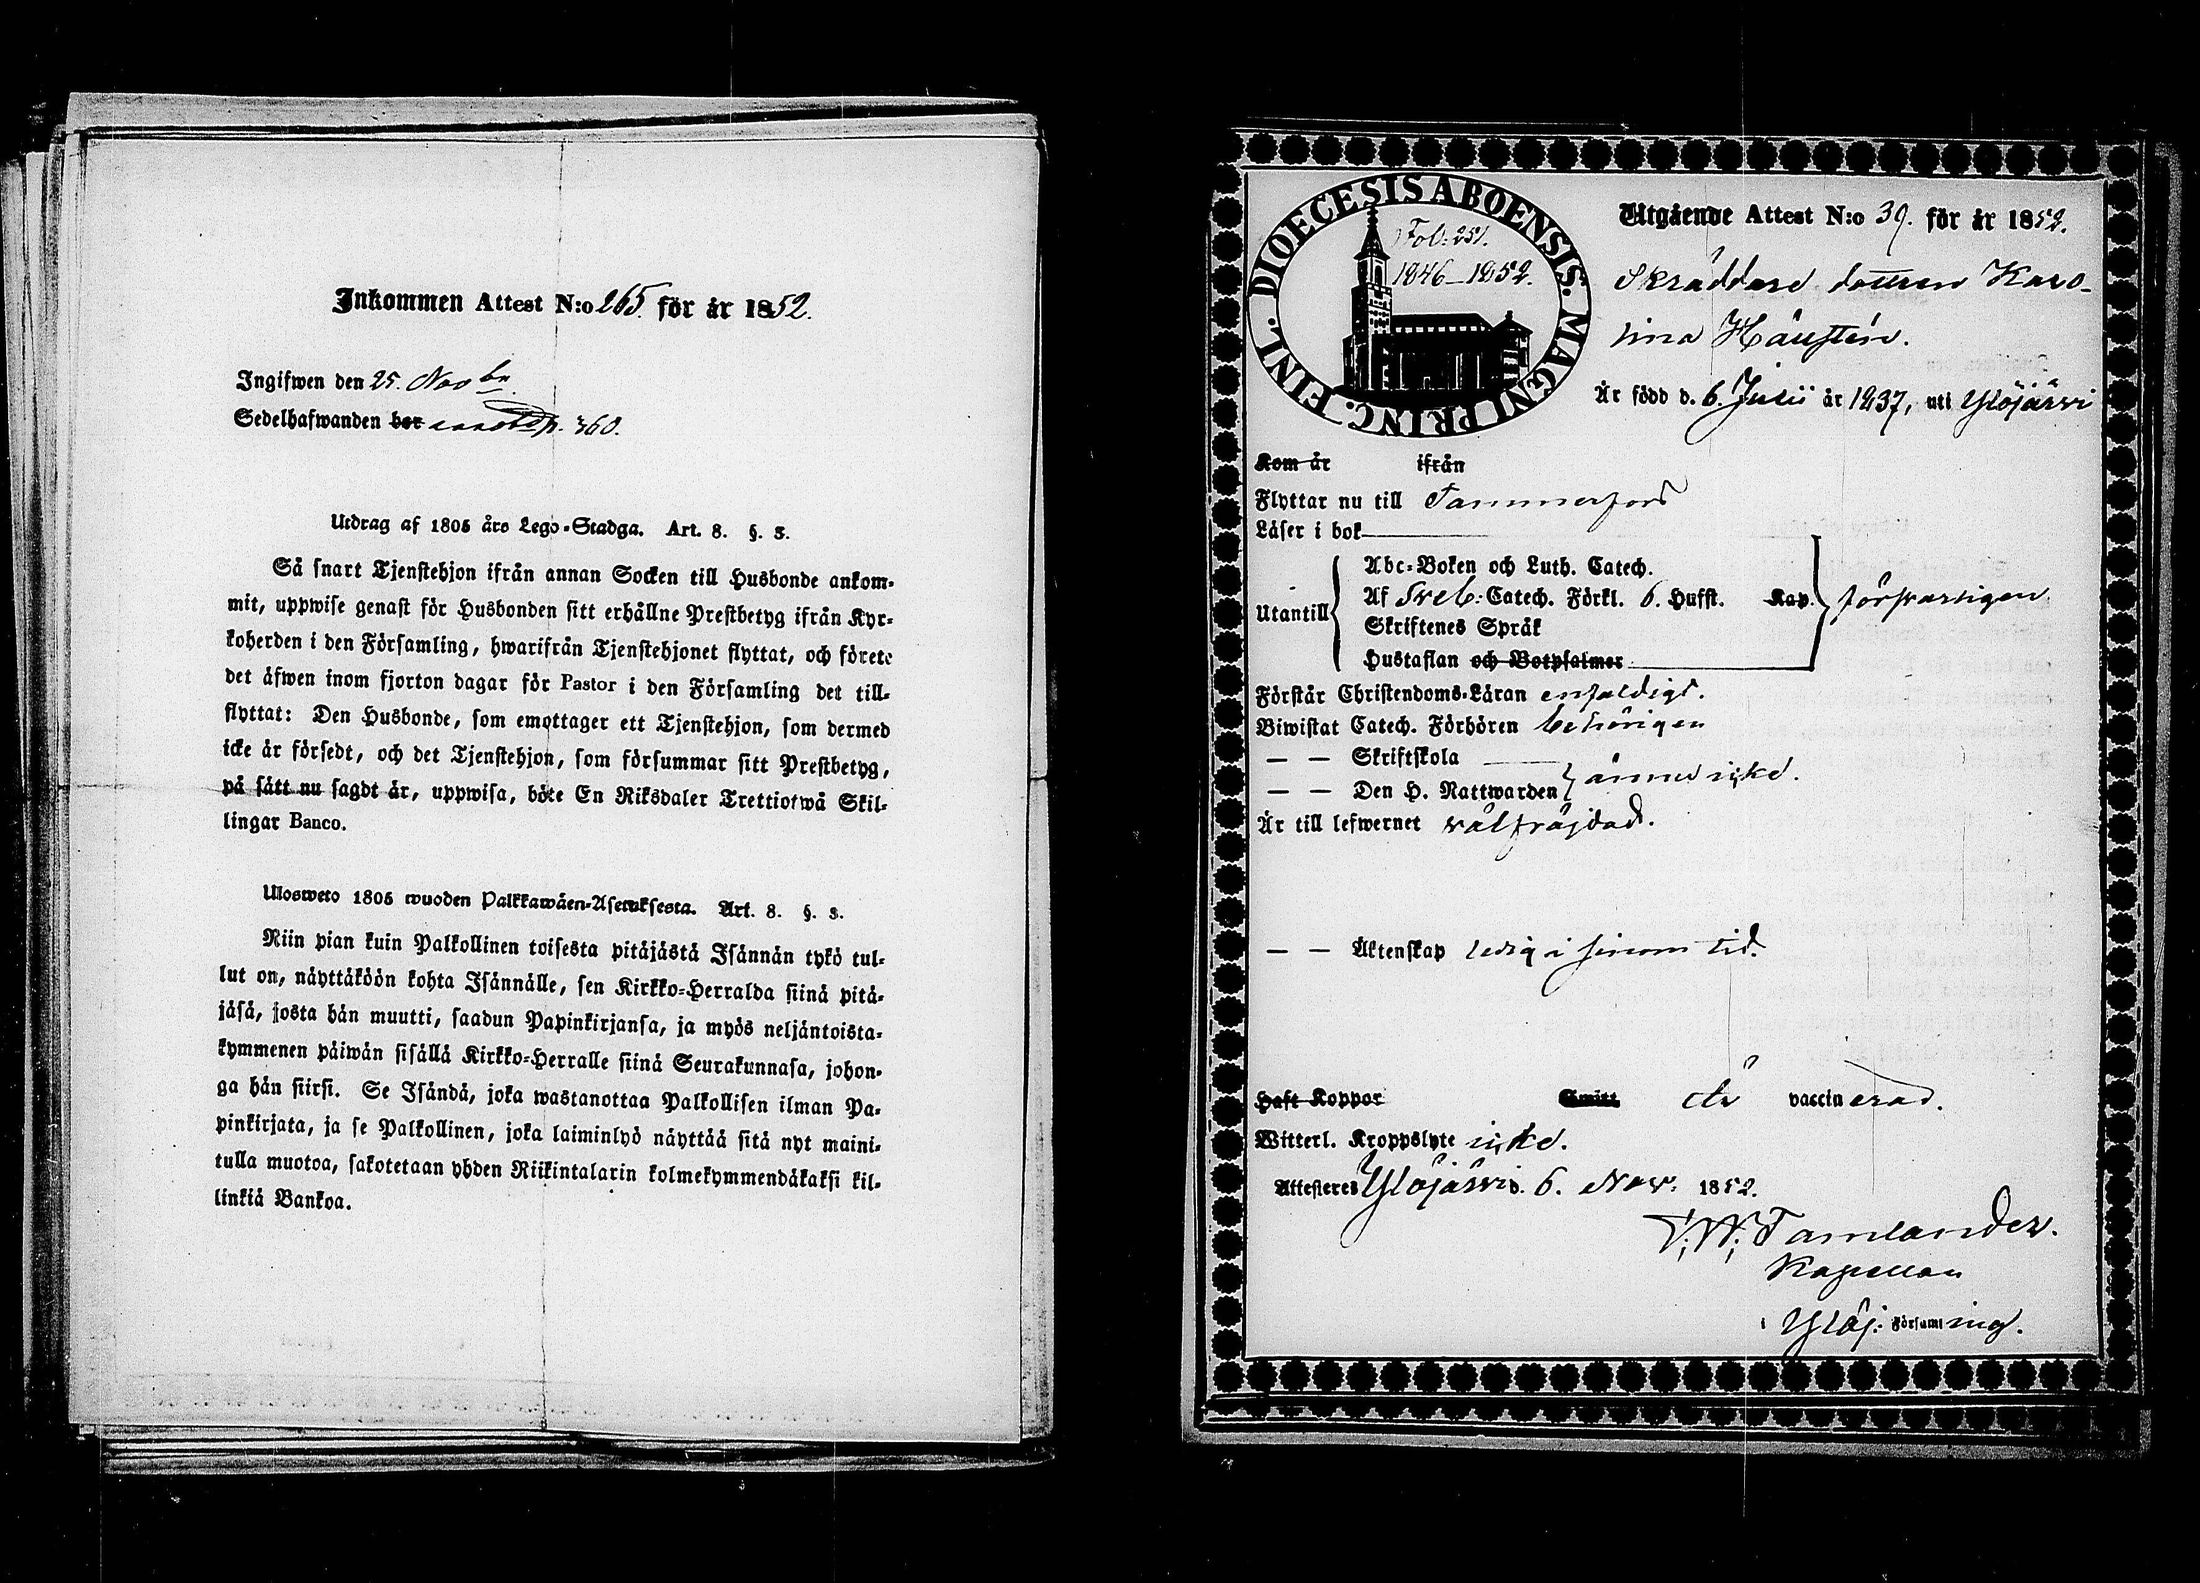 Inkommen Attest N:o 265. för år 1852.
Ingifwen den 25. Novbr
Sedelhafwanden bor p. 360.
Utdrag af 1805 års Lego-Stadga. Art. 8. §. 3.
Så snart Tjenstehjon ifrån annan Socken till Husbonde ankom-
mit, uppwise genast för Husbonden sitt erhållne Prestbetyg ifrån Kyr-
koherden i den Församling, hwarifrån Tjenstehjonet flyttat, och förete
det äfwen inom fjorton dagar för Pastor i den Församling det till-
flyttat: Den Husbonde, som emottager ett Tjenstehjon, som dermed
icke är försedt, och det Tjenstehjon, som försummar sitt Prestbetyg,
på sätt nu sagdt är, uppwisa, böte En Riksdaler Trettiotwå Skil-
lingar Banco.
Ulosweto 1805 wuoden Palkkawäen-Asetuksesta. Art. 8. §. 3.
Niin pian kuin Palkollinen toisesta pitäjästä Isännän tykö tul-
lut on, näyttäköön kohta Isännälle, sen Kirkko-Herralda siinä pitä-
jäsä, josta hän muutti, saadun Papinkirjansa, ja myös neljäntoista-
kymmenen päiwän sisällä Kirkko-Herralle siinä Seurakunnasa, johon-
ga hän siirsi. Se Isändä, joka wastanottaa Palkollisen ilman Pa-
pinkirjata, ja se Palkollinen, joka laiminlyö näyttää sitä nyt maini-
tulla muotoa, sakotetaan yhden Riikintalarin kolmekymmendäkaksi kil-
linkiä Bankoa.
DIOECESIS ABOENSIS. MAGNI PRINC. FINL.
Fol: 251.
1846–1852.
Utgående Attest N:o 39. för år 1852.
Skräddare dottren Karo-
lina Häustén.
Är född d. 6. Julii år 1837, uti Ylöjärvi
Kom år ifrån
Flyttar nu till Tammerfors
Läser i bok
Utantill
Abc-Boken och Luth. Catech.
Af Sveb: Catech. Förkl. 6. Hufst. Kap. försvarligen
Skriftenes Språk
Hustaflan och Botpsalmer
Förstår Christendoms-Läran enfaldigt.
Biwistat Catech. Förhören behörigen
— — Skriftskola
— — Den H. Nattwarden ännu icke.
Är till lefwernet välfräjdad.
— — Äktenskap ledig i sinom tid.
Haft Koppor Smitt Är vaccinerad.
Witterl. Kroppslyte icke.
Attesteres Ylöjärvi d. 6. Nov: 1852.
Tamlander.
Kapellan
i Ylöj: Församling.